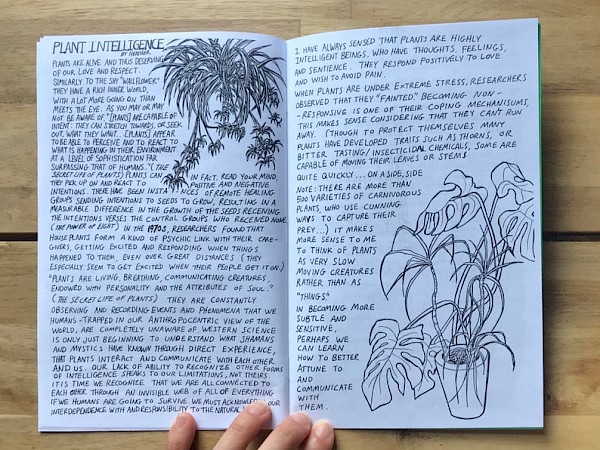 PLANT INTELLIGENCE
BY HEATHER
PLANTS ARE ALIVE. AND THUS DESERVING
OF OUR LOVE AND RESPECT.
SIMILARLY TO THE SHY "WALLFLOWER"
THEY HAVE A RICH INNER WORLD,
WITH A LOT MORE GOING ON THAN
MEETS THE EYE. AS YOU MAY OR MAY
NOT BE AWARE OF "[PLANTS] ARE CAPABLE OF
INTENT: THEY CAN STRETCH TOWARDS, OR SEEK
OUT, WHAT THEY WANT... [PLANTS] APPEAR
TO BE ABLE TO PERCEIVE AND TO REACT TO
WHAT IS HAPPENING IN THEIR ENVIRONMENT
AT A LEVEL OF SOPHISTICATION FAR
SURPASSING THAT OF HUMANS." (THE
SECRET LIFE OF PLANTS) PLANTS CAN IN FACT, READ YOUR MIND,
THEY PICK UP ON AND REACT TO POSITIVE AND NEGATIVE
INTENTIONS. THERE HAVE BEEN INSTANCES OF REMOTE HEALING
GROUPS SENDING INTENTIONS TO SEEDS TO GROW, RESULTING IN A
MEASURABLE DIFFERENCE IN THE GROWTH OF THE SEEDS RECEIVING
THE INTENTIONS VERSES THE CONTROL GROUPS WHO RECEIVED NONE.
(THE POWER OF EIGHT) IN THE 1970s, RESEARCHERS FOUND THAT
HOUSEPLANTS FORM A KIND OF PSYCHIC LINK WITH THEIR CARE-
GIVERS, GETTING EXCITED AND RESPONDING WHEN THINGS
HAPPENED TO THEM, EVEN OVER GREAT DISTANCES (THEY
ESPECIALLY SEEM TO GET EXCITED WHEN THEIR PEOPLE GET IT ON.)
"PLANTS ARE LIVING, BREATHING, COMMUNICATING CREATURES,
ENDOWED WITH PERSONALITY AND THE ATTRIBUTES OF SOUL."
(THE SECRET LIFE OF PLANTS) THEY ARE CONSTANTLY
OBSERVING AND RECORDING EVENTS AND PHENOMENA THAT WE
HUMANS - TRAPPED IN OUR ANTHROPOCENTRIC VIEW OF THE
WORLD, ARE COMPLETELY UNAWARE OF. WESTERN SCIENCE
IS ONLY JUST BEGINNING TO UNDERSTAND WHAT SHAMANS
AND MYSTICS HAVE KNOWN THROUGH DIRECT EXPERIENCE,
THAT PLANTS INTERACT AND COMMUNICATE WITH EACH OTHER
AND US. OUR LACK OF ABILITY TO RECOGNIZE OTHER FORMS
OF INTELLIGENCE SPEAKS TO OUR LIMITATIONS, NOT THEIRS.
IT IS TIME WE RECOGNIZE THAT WE ARE ALL CONNECTED TO
EACH OTHER THROUGH AN INVISIBLE WEB OF ALL OF EVERYTHING
IF WE HUMANS ARE GOING TO SURVIVE WE MUST ACKNOWLEDGE OUR
INTERDEPENDENCE WITH AND RESPONSIBILITY TO THE NATURAL
I HAVE ALWAYS SENSED THAT PLANTS ARE HIGHLY
INTELLIGENT BEINGS, WHO HAVE THOUGHTS, FEELINGS,
AND SENTIENCE. THEY RESPOND POSITIVELY TO LOVE
AND WISH TO AVOID PAIN.
WHEN PLANTS ARE UNDER EXTREME STRESS, RESEARCHERS
OBSERVED THAT THEY "FAINTED." BECOMING NON-
-RESPONSIVE IS ONE OF THEIR COPING MECHANISUMS,
THIS MAKES SENSE CONSIDERING THAT THEY CAN'T RUN
AWAY. (THOUGH TO PROTECT THEMSELVES MANY
PLANTS HAVE DEVELOPED TRAITS SUCH AS THORNS, OR
BITTER TASTING/INSECTICIDAL CHEMICALS, SOME ARE
CAPABLE OF MOVING THEIR LEAVES OR STEMS
QUITE QUICKLY... ON A SIDE, SIDE
NOTE: THERE ARE MORE THAN
600 VARIETIES OF CARNIVOROUS
PLANTS, WHO USE CUNNING
WAYS TO CAPTURE THEIR
PREY...) IT MAKES
MORE SENSE TO ME
TO THINK OF PLANTS
AS VERY SLOW
MOVING CREATURES
RATHER THAN AS
"THINGS."
IN BECOMING MORE
SUBTLE AND
SENSITIVE,
PERHAPS WE
CAN LEARN
HOW TO BETTER
ATTUNE TO
AND
COMMUNICATE
WITH
THEM.